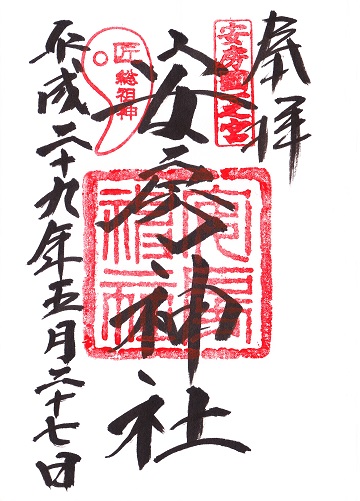 奉拝
安房國一之宮
安房神社
安房神社
匠総祖神
平成二十九年五月二十七日